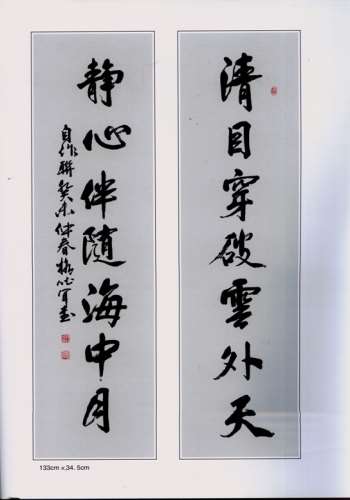 清目穿破雲外天
静心伴随海中月
自作联癸未仲春
133cm × 34.5cm